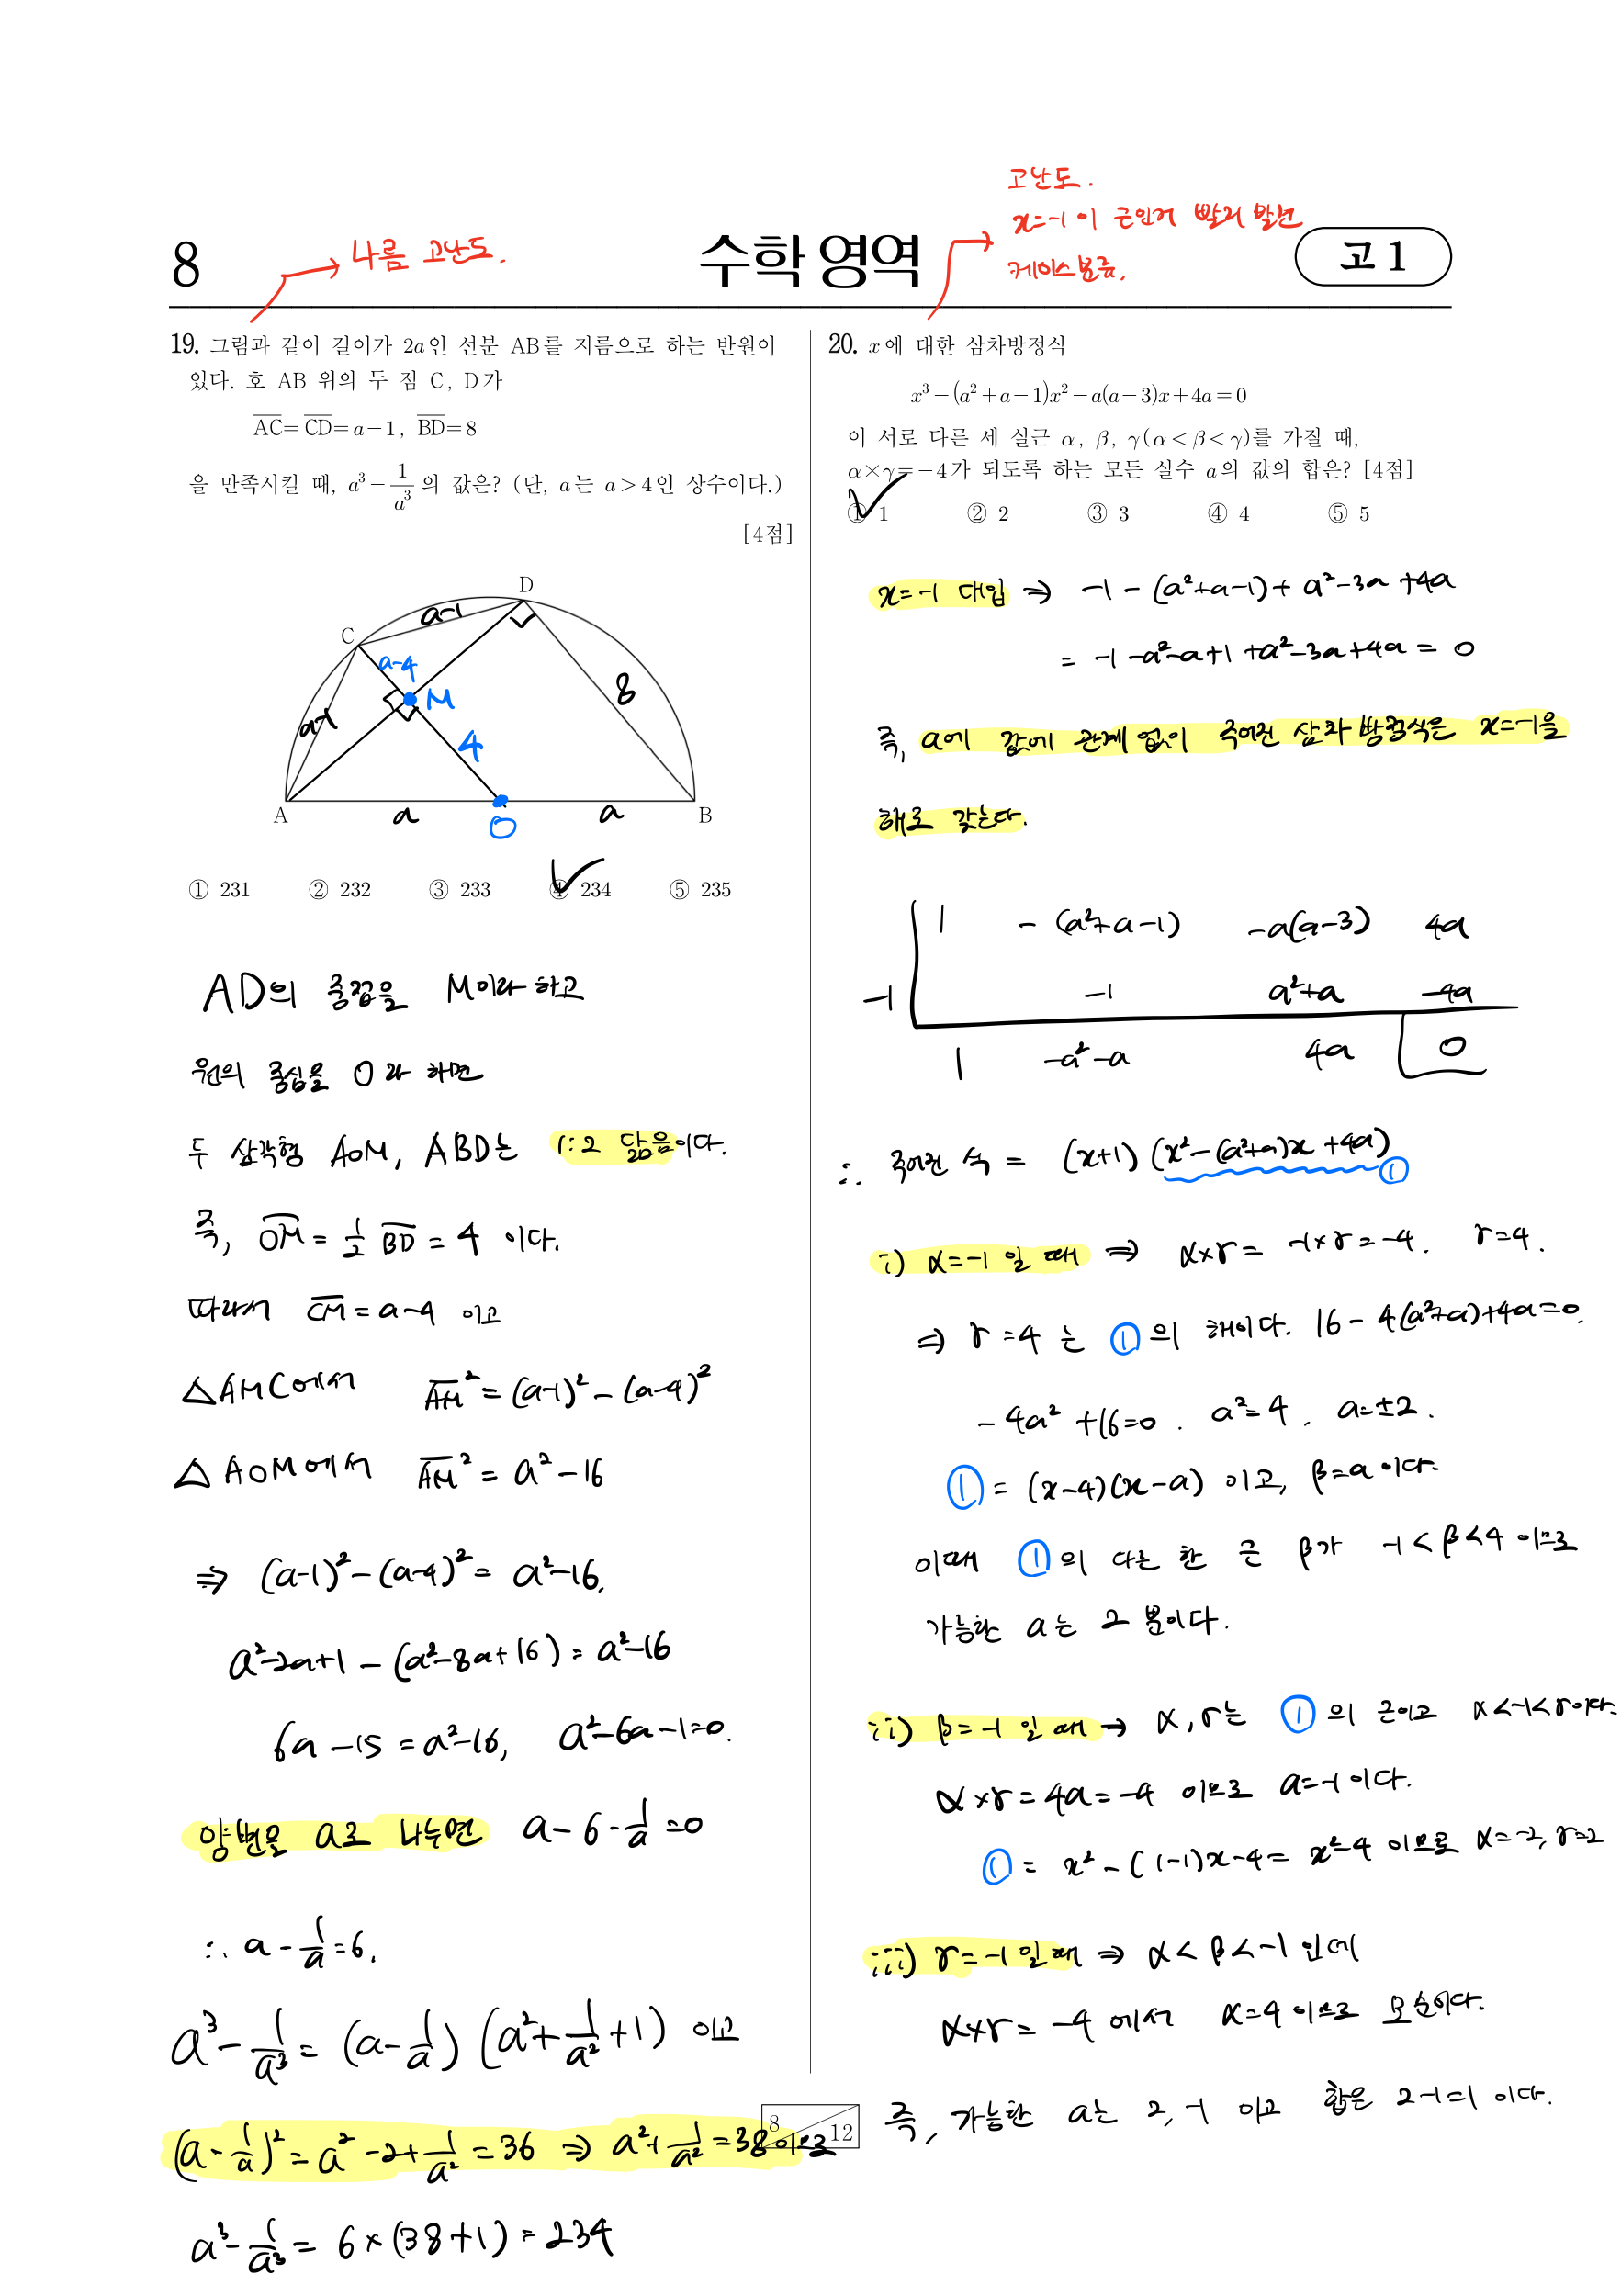 고난도.
x=-1이 근인거 빨리 발견
케이스분류.
나름 고난도.
8
수학 영역
고 1
19. 그림과 같이 길이가 2a인 선분 AB를 지름으로 하는 반원이
있다. 호 AB 위의 두 점 C, D가
AC=CD=a-1, BD=8
을 만족시킬 때, a³-1/a³의 값은? (단, a는 a>4인 상수이다.)
[4점]
D
C
a-1
a-4
M
a-1
8
4
A
a
O
a
B
① 231 ② 232 ③ 233 ④ 234 ⑤ 235
AD의 중점을 M이라 하고
원의 중심을 O라 하면
두 삼각형 AOM, ABD는 1:2 닮음이다.
즉, OM = 1/2 BD = 4 이다.
따라서 CM = a-4 이고
△AMC에서 AM² = (a-1)² - (a-4)²
△AOM에서 AM² = a²-16
⇒ (a-1)²-(a-4)² = a²-16.
a²-2a+1 - (a²-8a+16) = a²-16
6a-15 = a²-16, a²-6a-1=0.
양변을 a로 나누면 a-6-1/a=0
∴ a-1/a=6.
a³-1/a³ = (a-1/a)(a²+1/a²+1) 이고
(a-1/a)² = a²-2+1/a² = 36 ⇒ a²+1/a² = 38 이므로
a³-1/a³ = 6×(38+1) = 234
20. x에 대한 삼차방정식
x³-(a²+a-1)x²-a(a-3)x+4a=0
이 서로 다른 세 실근 α, β, γ(α<β<γ)를 가질 때,
α×γ=-4가 되도록 하는 모든 실수 a의 값의 합은? [4점]
① 1 ② 2 ③ 3 ④ 4 ⑤ 5
x=-1 대입 ⇒ -1-(a²+a-1)+a²-3a+4a
= -1-a²-a+1+a²-3a+4a = 0
즉, a에 값에 관계 없이 주어진 삼차방정식은 x=-1을
해로 갖는다.
1 -(a²+a-1) -a(a-3) 4a
-1 -1 a²+a -4a
1 -a²-a 4a 0
∴ 주어진 식 = (x+1)(x²-(a²+a)x+4a) ①
i) α=-1 일 때 ⇒ α×γ = -1×γ=-4. γ=4.
⇒ γ=4 는 ①의 해이다. 16-4(a²+a)+4a=0.
-4a²+16=0. a²=4, a=±2.
① = (x-4)(x-a) 이고, β=a 이다.
이때 ①의 다른 한 근 β가 -1<β<4 이므로
가능한 a는 2 뿐이다.
ii) β=-1 일 때 → α, γ는 ①의 근이고 α<-1<γ이다.
α×γ=4a=-4 이므로 a=-1 이다.
① = x²-(1-1)x-4= x²-4 이므로 α=-2, γ=2
iii) γ=-1 일 때 ⇒ α<β<-1 인데
α×γ=-4 에서 α=4 이므로 모순이다.
즉, 가능한 a는 2, -1 이고 합은 2-1=1 이다.
8
12